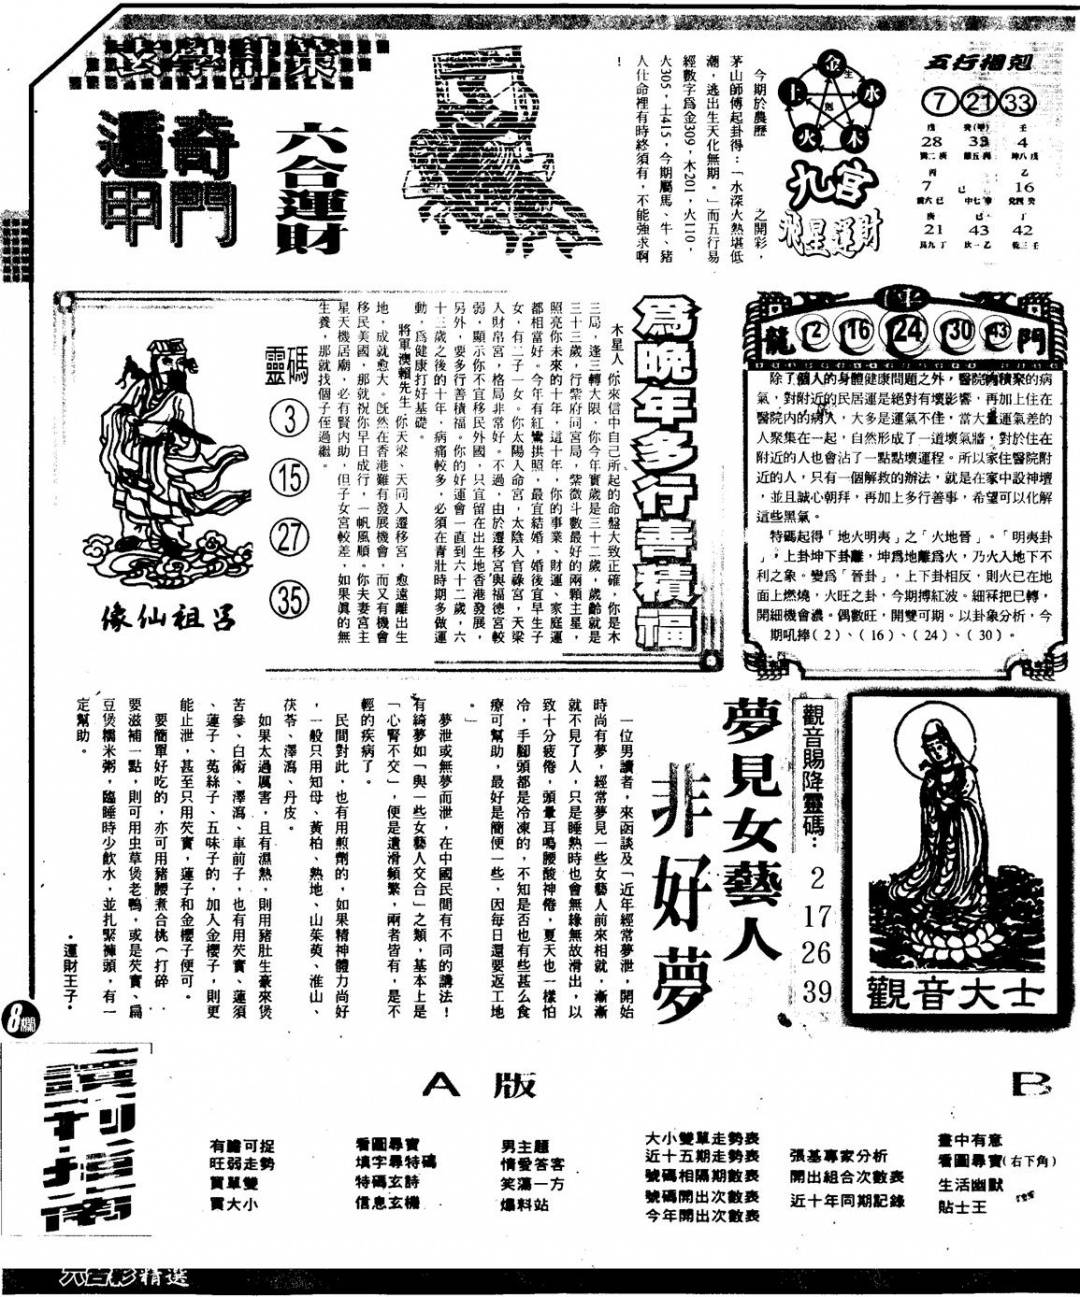 奇門
遁甲
六合運財
今期於農歷　　之開彩，
茅山師傅起卦得：「水深火熱堪低
潮，逃出生天化無期。」而五行易
經數字為金309，木201，火110，
火305，土415，今期屬馬、牛、豬
人仕命裡有時終須有，不能強求啊
！
金
水
木
火
土
生
剋
九宮
飛星運財
五行相剋
7 21 33
28 33 4
7 16
21 43 42
呂祖仙像
靈碼
3
15
27
35
為晚年多行善積福
木星人：你來信中自己所起的命盤大致正確，你是木
三局，逢三轉大限，你今年實歲是三十二歲，歲齡就是
三十三歲，行紫府同宮局，紫微斗數最好的兩顆主星，
照亮你未來的十年，這十年，你的事業、財運、家庭運
都相當好。今年有紅鸞拱照，最宜結婚，婚後宜早生子
女，有二子一女。你太陽入命宮，太陰入官祿宮，天梁
入財帛宮，格局非常好。不過，由於遷移宮與福德宮較
弱，顯示你不宜移民外國，只宜留在出生地香港發展，
另外，要多行善積福。你的好運會一直到六十二歲，六
十三歲之後的十年，病痛較多，必須在青壯時期多做運
動，為健康打好基礎。
將軍澳賴先生：你天梁、天同入遷移宮，愈遠離出生
地，成就愈大。既然在香港難有發展機會，而又有機會
移民美國，那就祝你早日成行，一帆風順。你夫妻宮主
星天機居廟，必有賢內助，但子女宮較差，如果真的無
生養，那就找個子侄過繼。
龍門
2 16 24 30 43
除了個人的身體健康問題之外，醫院病積聚的病
氣，對附近的民居運是絕對有壞影響，再加上住在
醫院內的病人，大多是運氣不佳，當大量運氣差的
人聚集在一起，自然形成了一道壞氣牆，對於住在
附近的人也會沾了一點點壞運程。所以家住醫院附
近的人，只有一個解救的辦法，就是在家中設神壇
，並且誠心朝拜，再加上多行善事，希望可以化解
這些黑氣。
特碼起得「地火明夷」之「火地晉」。「明夷卦
」，上卦坤下卦離，坤為地離為火，乃火入地下不
利之象。變為「晉卦」，上下卦相反，則火已在地
面上燃燒，火旺之卦，今期搏紅波。細冧把已轉，
開細機會濃。偶數旺，開雙可期。以卦象分析，今
期吼捧（2）、（16）、（24）、（30）。
觀音大士
觀音賜降靈碼：
2
17
26
39
夢見女藝人
非好夢
一位男讀者，來函談及「近年經常夢泄，開始
時尚有夢，經常夢見一些女藝人前來相就，漸漸
就不見了人，只是睡熟時也會無緣無故滑出，以
致十分疲倦，頭暈耳鳴腰酸神倦，夏天也一樣怕
冷，手腳頭都是冷凍的，不知是否也有些甚么食
療可幫助，最好是簡便一些，因每日還要返工地
。」
夢泄或無夢而泄，在中國民間有不同的講法！
有綺夢如「與一些女藝人交合」之類，基本上是
「心腎不交」，便是遺滑頻繁，兩者皆有，是不
輕的疾病了。
民間對此，也有用煎劑的，如果精神體力尚好
，一般只用知母、黃柏、熟地、山茱萸、淮山、
茯苓、澤瀉、丹皮。
如果太過厲害，且有濕熱，則用豬肚生薏來煲
苦參、白術、澤瀉、車前子，也有用芡實、蓮須
、蓮子、菟絲子、五味子的，加入金櫻子，則更
能止泄，甚至只用芡實，蓮子和金櫻子便可。
要簡單好吃的，亦可用豬腰煮合桃（打碎
要滋補一點，則可用虫草煲老鴨，或是芡實、扁
豆煲糯米粥，臨睡時少飲水，並扎緊褲頭，有一
定幫助。
・運財王子・
8欄
讀刊指南
A 版
B
有膽可捉
旺弱走勢
買單雙
買大小
看圖尋寶
填字尋特碼
特碼玄詩
信息玄機
男主題
情愛答客
笑蕩一方
爆料站
大小雙單走勢表
近十五期走勢表
號碼相隔期數表
號碼開出次數表
今年開出次數表
張基專家分析
開出組合次數表
近十年同期記錄
畫中有意
看圖尋寶（右下角）
生活幽默
貼士王
六合彩精選